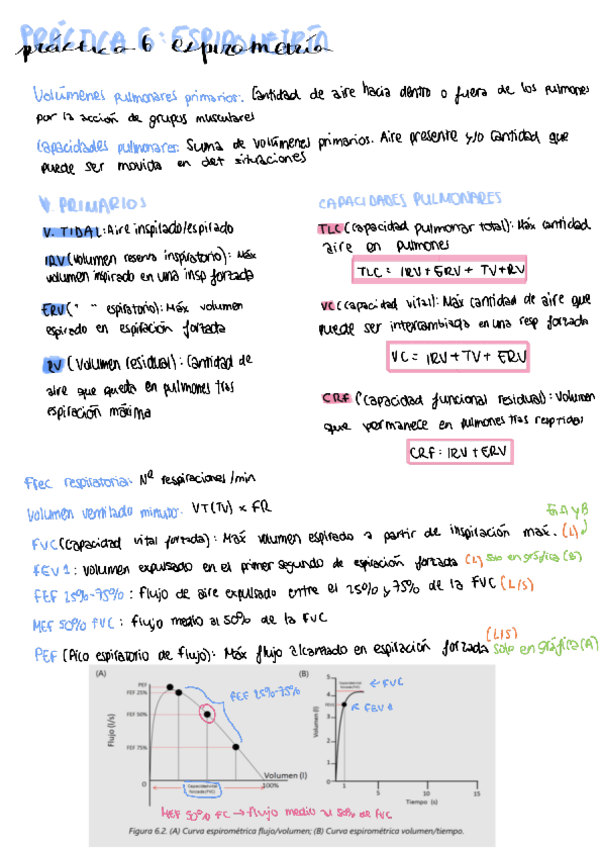 PRÁCTICA 6: ESPIROMETRÍA
práctica 6 espirometría
Volúmenes pulmonares primarios: Cantidad de aire hacia dentro o fuera de los pulmones
por la acción de grupos musculares
Capacidades pulmonares: Suma de volúmenes primarios. Aire presente y/o cantidad que
puede ser movida en det situaciones
V. PRIMARIOS
V. TIDAL: Aire inspirado/espirado
IRV (Volumen reserva inspiratorio): Máx
volumen inspirado en una insp forzada
ERV (" " espiratorio): Máx volumen
espirado en espiración forzada
RV (Volumen residual): Cantidad de
aire que queda en pulmones tras
espiración máxima
CAPACIDADES PULMONARES
TLC (capacidad pulmonar total): Máx cantidad
aire en pulmones
TLC = IRV + ERV + TV + RV
VC (capacidad vital): Máx cantidad de aire que
puede ser intercambiada en una resp forzada
VC = IRV + TV + ERV
CRF (capacidad funcional residual): Volumen
que permanece en pulmones tras
CRF: IRV + ERV
Frec respiratoria: Nº respiraciones/min
Volumen ventilado minuto: VT(TV) x FR
En A y B
FVC (Capacidad vital forzada): Máx volumen espirado a partir de inspiración máx. (L)
FEV1: volumen expulsado en el primer segundo de espiración forzada (L) solo en gráfica (B)
FEF 25%-75%: flujo de aire expulsado entre el 25% y 75% de la FVC (L/s)
MEF 50% FVC: flujo medio al 50% de la FVC
PEF (Pico espiratorio de flujo): Máx flujo alcanzado en espiración forzada (L/s) solo en gráfica (A)
(A)
PEF
FEF 25%
FEF 50%
FEF 75%
Flujo (l/s)
FEF 25%-75%
0
Capacidad vital
forzada (FVC)
100%
Volumen (l)
MEF 50% FC → flujo medio al 50% de FVC
(B)
Volumen (l)
5
4
3
2
1
Capacidad vital
forzada (FVC)
← FVC
FEV1
← FEV 1
1 5 10 15
Tiempo (s)
Figura 6.2. (A) Curva espirométrica flujo/volumen; (B) Curva espirométrica volumen/tiempo.